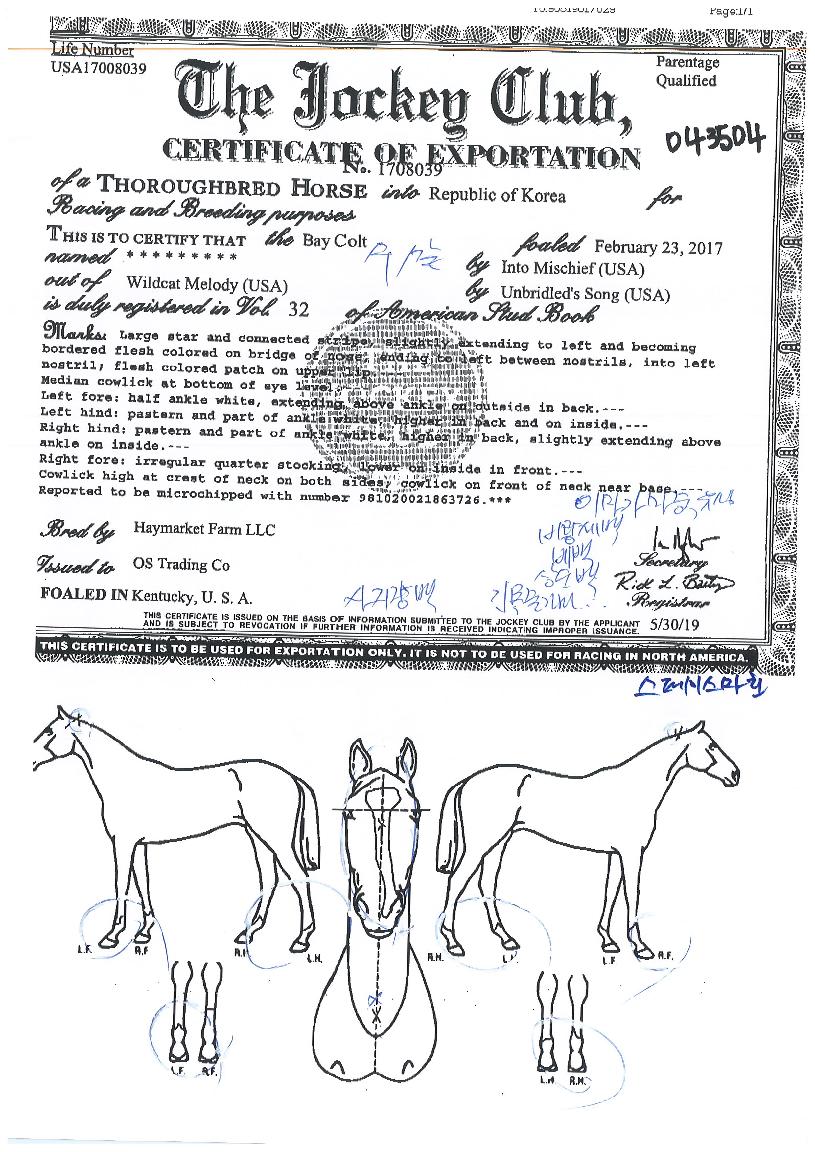 Page:1/1
Life Number
USA17008039
Parentage
Qualified
The Jockey Club,
043504
CERTIFICATE OF EXPORTATION
No. 1708039
of a THOROUGHBRED HORSE into Republic of Korea for
Racing and Breeding purposes
THIS IS TO CERTIFY THAT the Bay Colt foaled February 23, 2017
named * * * * * * * * * by Into Mischief (USA)
out of Wildcat Melody (USA) by Unbridled's Song (USA)
is duly registered in Vol. 32 of American Stud Book
Marks: Large star and connected stripe, slightly extending to left and becoming
bordered flesh colored on bridge of nose, ending to left between nostrils, into left
nostril; flesh colored patch on upper lip.---
Median cowlick at bottom of eye level.---
Left fore: half ankle white, extending above ankle on outside in back.---
Left hind: pastern and part of ankle white, higher in back and on inside.---
Right hind: pastern and part of ankle white, higher in back, slightly extending above
ankle on inside.---
Right fore: irregular quarter stocking, lower on inside in front.---
Cowlick high at crest of neck on both sides; cowlick on front of neck near base.---
Reported to be microchipped with number 981020021863726.***
Bred by Haymarket Farm LLC
Secretary
Issued to OS Trading Co
Rick L. Bailey
Registrar
FOALED IN Kentucky, U. S. A.
THIS CERTIFICATE IS ISSUED ON THE BASIS OF INFORMATION SUBMITTED TO THE JOCKEY CLUB BY THE APPLICANT
AND IS SUBJECT TO REVOCATION IF FURTHER INFORMATION IS RECEIVED INDICATING IMPROPER ISSUANCE. 5/30/19
THIS CERTIFICATE IS TO BE USED FOR EXPORTATION ONLY. IT IS NOT TO BE USED FOR RACING IN NORTH AMERICA.
L.F. R.F. L.H. R.H. L.F. R.F.
L.F. R.F. L.H. R.H.